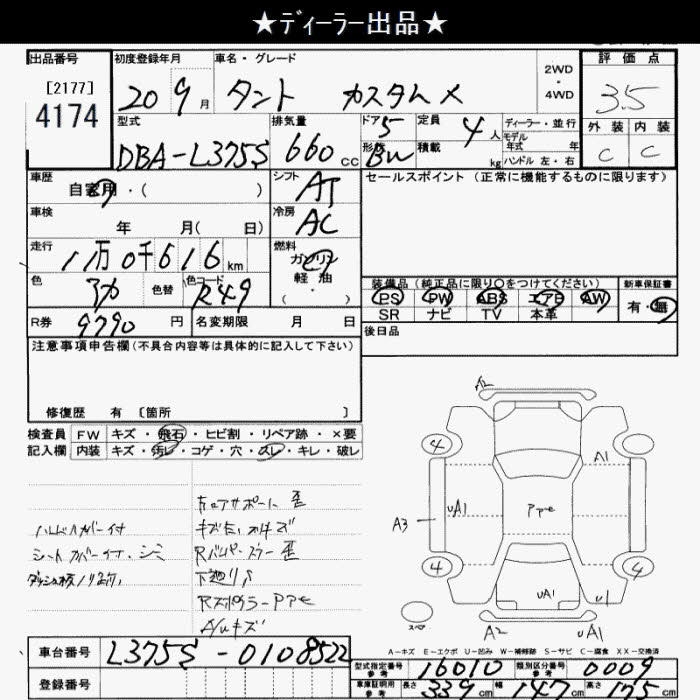 ★ディーラー出品★
出品番号
[2177]
4174
初度登録年月
20 9月
車名・グレード
タント カスタム X
2WD
・
4WD
評価点
3.5
外装 内装
C C
型式
DBA-L375S
排気量
660 cc
ドア 5
形状 BW
定員 4人
積載 kg
ディーラー・並行
モデル
年式 年
ハンドル 左・右
車歴
自家用・( )
シフト
AT
セールスポイント (正常に機能するものに限ります)
車検
年 月( 日)
冷房
AC
走行
11万0千616km
燃料
ガソリン
軽油
( ・ )
色
アカ
色替
色コード
R49
装備品 (純正品に限り○をつけてください)
PS PW ABS エアB AW
SR ナビ TV 本革
新車保証書
有・無
R券
9790円
名変期限 月 日
後日品
注意事項申告欄 (不具合内容等は具体的に記入して下さい)
修復歴 有 [箇所 ]
検査員 FW キズ・飛石・ヒビ割・リペア跡・×要
記入欄 内装 キズ・汚レ・コゲ・穴・スレ・キレ・破レ
ハンドルカバー付
シートカバー付、シミ
コアサポート歪
Rバンパー
下廻りS
Rスポイラーppe
A/Wキズ
A2
4
A1
A3
UA1
PPe
4
4
UA1
U1
スペア
A2
UA1
A－キズ E－エクボ U－凹み W－補修跡 S－サビ C－腐食 XX－交換済
車台番号
L375S-0108522
登録番号
型式指定番号
参考
16010
類別区分番号
参考
0009
車庫証明用
参考
長さ 339cm 幅 147cm 高さ 175cm